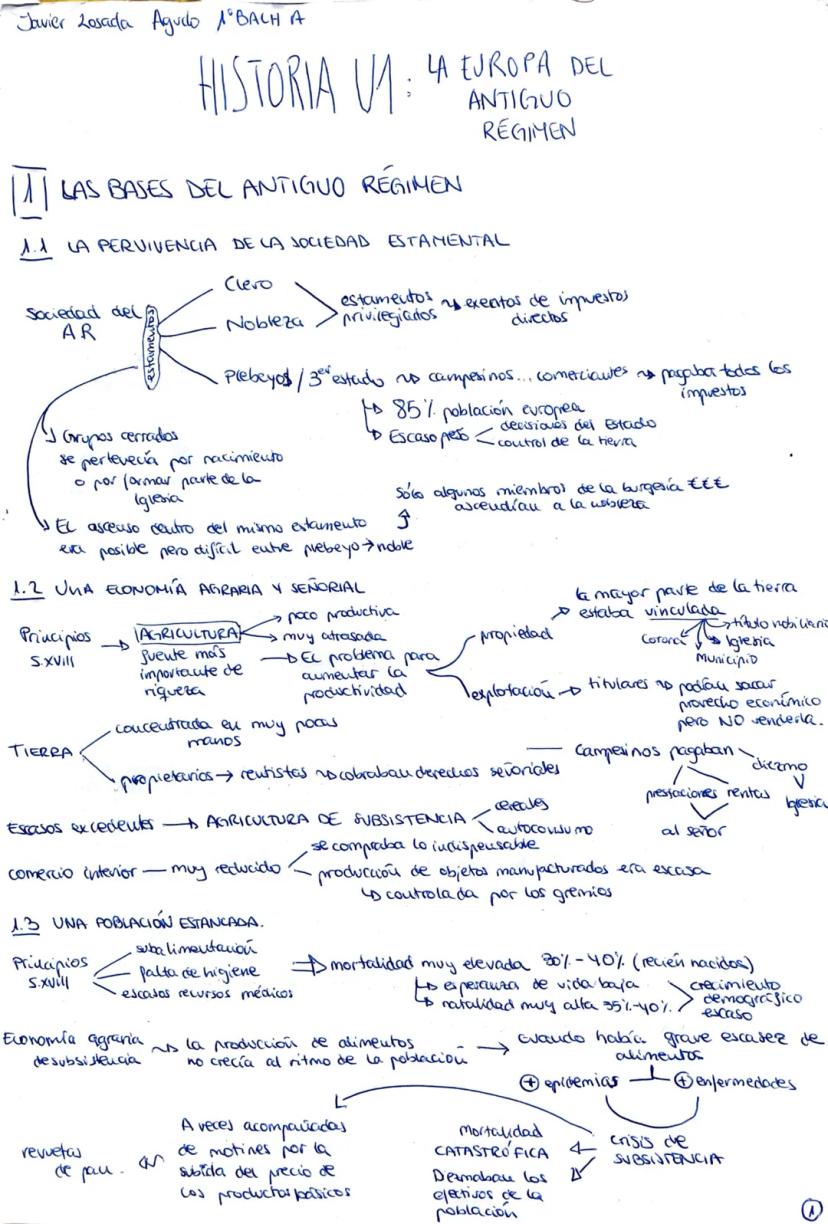 Javier Losada Agudo 1º BACH A
HISTORIA U1: LA EUROPA DEL
ANTIGUO
RÉGIMEN
1 LAS BASES DEL ANTIGUO RÉGIMEN
1.1 LA PERVIVENCIA DE LA SOCIEDAD ESTAMENTAL
Sociedad del
AR
estamentos
Clero
Nobleza
estamentos
privilegiados
exentos de impuestos
directos
Plebeyos / 3er estado campesinos... comerciantes pagaban todos los
impuestos
85% población europea
Escaso peso
decisiones del Estado
control de la tierra
Grupos cerrados
se pertenecía por nacimiento
o por formar parte de la
Iglesia
Sólo algunos miembros de la burgesía €€€
ascendían a la nobleza
El ascenso dentro del mismo estamento
era posible pero difícil entre plebeyo → noble
1.2 UNA ECONOMÍA AGRARIA Y SEÑORIAL
Principios
S.XVIII
AGRICULTURA
fuente más
importante de
riqueza
poco productiva
muy atrasada
El problema para
aumentar la
productividad
propiedad
la mayor parte de la tierra
estaba vinculada
título nobiliario
Corona
Iglesia
Municipio
explotación
titulares podían sacar
provecho económico
pero NO venderla.
TIERRA
concentrada en muy pocas
manos
propietarios → rentistas cobraban derechos señoriales
Campesinos pagaban
diezmo
prestaciones rentas
Iglesia
al señor
Escasos excedentes → AGRICULTURA DE SUBSISTENCIA
cereales
autoconsumo
comercio interior — muy reducido
se compraba lo indispensable
producción de objetos manufacturados era escasa
controlada por los gremios
1.3 UNA POBLACIÓN ESTANCADA.
Principios
S.XVIII
subalimentación
falta de higiene
escasos recursos médicos
mortalidad muy elevada 30%-40% (recién nacidos)
esperanza de vida baja
natalidad muy alta 35%-40%
crecimiento
demográfico
escaso
Economía agraria
de subsistencia
la producción de alimentos
no crecía al ritmo de la población
cuando había grave escasez de
alimentos
+ epidemias
+ enfermedades
crisis de
SUBSISTENCIA
Mortalidad
CATASTRÓFICA
Dermaban los
efectivos de la
población
A veces acompañadas
de motines por la
subida del precio de
los productos básicos
revuetas
de pan.
1